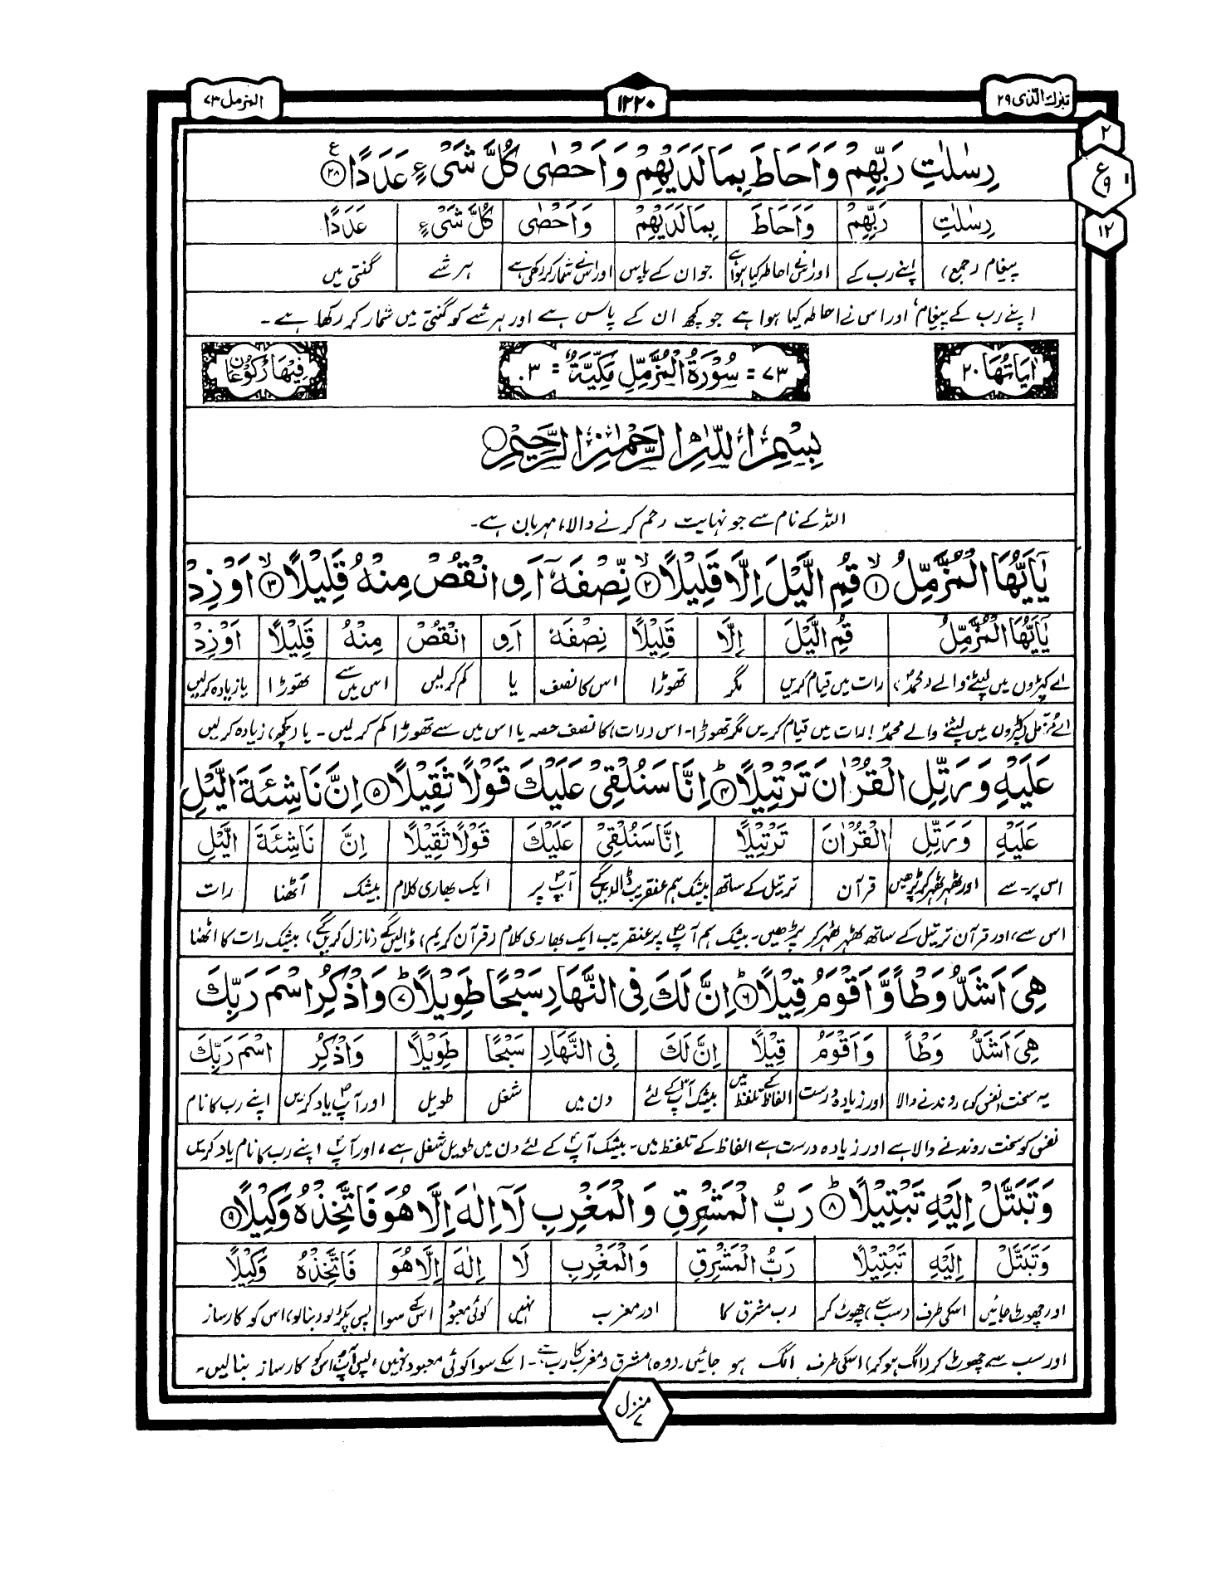 تبٰرك الذی ۲۹
۱۲۲۰
المزمل ۷۳
۲
ع
۹
۱
۱۲
رِسٰلٰتِ رَبِّهِمْ وَاَحَاطَ بِمَا لَدَیْهِمْ وَاَحْصٰی كُلَّ شَیْءٍ عَدَدًا ۲۸ ع
رِسٰلٰتِ رَبِّهِمْ وَاَحَاطَ بِمَا لَدَیْهِمْ وَاَحْصٰی كُلَّ شَیْءٍ عَدَدًا
پیغام (جمع) اپنے رب کے اور اسنے احاطہ کیا ہوا ہے جو ان کے پاس اور اسنے شمار کر رکھی ہے ہر شے گنتی میں
اپنے رب کے پیغام، اور اس نے احاطہ کیا ہوا ہے جو کچھ ان کے پاس ہے اور ہر شے کو گنتی میں شمار کر رکھا ہے۔
اٰیَاتُهَا ۲۰
۷۳ = سُوْرَةُ الْمُزَّمِّلِ مَكِّیَّةٌ = ۳۰
فِیْهَا رُكُوْعَانِ
بِسْمِ اللّٰهِ الرَّحْمٰنِ الرَّحِیْمِ
اللہ کے نام سے جو نہایت رحم کرنے والا، مہربان ہے۔
یٰۤاَیُّهَا الْمُزَّمِّلُ ۱ قُمِ الَّیْلَ اِلَّا قَلِیْلًا ۲ نِّصْفَهٗۤ اَوِ انْقُصْ مِنْهُ قَلِیْلًا ۳ اَوْ زِدْ
یٰۤاَیُّهَا الْمُزَّمِّلُ قُمِ الَّیْلَ اِلَّا قَلِیْلًا نِصْفَهٗ اَوِ انْقُصْ مِنْهُ قَلِیْلًا اَوْ زِدْ
اے کپڑوں میں لپٹنے والے (محمدؐ) رات میں قیام کریں مگر تھوڑا اس کا نصف یا کم کر لیں اس میں سے تھوڑا یا زیادہ کرلیں
اے مزمل (کپڑوں میں لپٹنے والے محمدؐ)! رات میں قیام کریں مگر تھوڑا۔ اس (رات) کا نصف حصہ یا اس میں سے تھوڑا کم کر لیں۔ یا (کچھ) زیادہ کرلیں
عَلَیْهِ وَرَتِّلِ الْقُرْاٰنَ تَرْتِیْلًا ۴ اِنَّا سَنُلْقِیْ عَلَیْكَ قَوْلًا ثَقِیْلًا ۵ اِنَّ نَاشِئَةَ الَّیْلِ
عَلَیْهِ وَرَتِّلِ الْقُرْاٰنَ تَرْتِیْلًا اِنَّا سَنُلْقِیْ عَلَیْكَ قَوْلًا ثَقِیْلًا اِنَّ نَاشِئَةَ الَّیْلِ
اس پر۔ سے اور ٹھہر ٹھہر کر پڑھیں قرآن ترتیل کے ساتھ بیشک ہم عنقریب ڈالیں گے آپؐ پر ایک بھاری کلام بیشک اٹھنا رات
اس سے، اور قرآن ترتیل کے ساتھ ٹھہر ٹھہر کر پڑھیں۔ بیشک ہم آپؐ پر عنقریب ایک بھاری کلام (قرآن کریم) ڈالیں گے (نازل کریں گے)، بیشک رات کا اٹھنا
هِیَ اَشَدُّ وَطْاً وَّاَقْوَمُ قِیْلًا ۶ اِنَّ لَكَ فِی النَّهَارِ سَبْحًا طَوِیْلًا ۷ وَاذْكُرِ اسْمَ رَبِّكَ
هِیَ اَشَدُّ وَطْاً وَاَقْوَمُ قِیْلًا اِنَّ لَكَ فِی النَّهَارِ سَبْحًا طَوِیْلًا وَاذْكُرِ اسْمَ رَبِّكَ
یہ سخت (نفس کو) روندنے والا اور زیادہ درست الفاظ کے تلفظ میں بیشک آپؐ کے لئے دن میں شغل طویل اور آپؐ یاد کریں اپنے رب کا نام
نفس کو سخت روندنے والا ہے اور زیادہ درست ہے الفاظ کے تلفظ میں۔ بیشک آپؐ کے لئے دن میں طویل شغل ہے، اور آپؐ اپنے رب کا نام یاد کریں
وَتَبَتَّلْ اِلَیْهِ تَبْتِیْلًا ۸ رَبُّ الْمَشْرِقِ وَالْمَغْرِبِ لَاۤ اِلٰهَ اِلَّا هُوَ فَاتَّخِذْهُ وَكِیْلًا ۹
وَتَبَتَّلْ اِلَیْهِ تَبْتِیْلًا رَبُّ الْمَشْرِقِ وَالْمَغْرِبِ لَا اِلٰهَ اِلَّا هُوَ فَاتَّخِذْهُ وَكِیْلًا
اور چھوٹ جائیں اسکی طرف (سب سے) چھوٹ کر رب مشرق کا اور مغرب نہیں کوئی معبود اس کے سوا پس پکڑ لو (بنالو) اس کو کارساز
اور سب سے چھوٹ کر (الگ ہو کر) اسکی طرف الگ ہو جائیں۔ (وہ) مشرق و مغرب کا رب ہے۔ اسکے سوا کوئی معبود نہیں، پس آپؐ اس کو کارساز بنالیں۔
منزل ۷